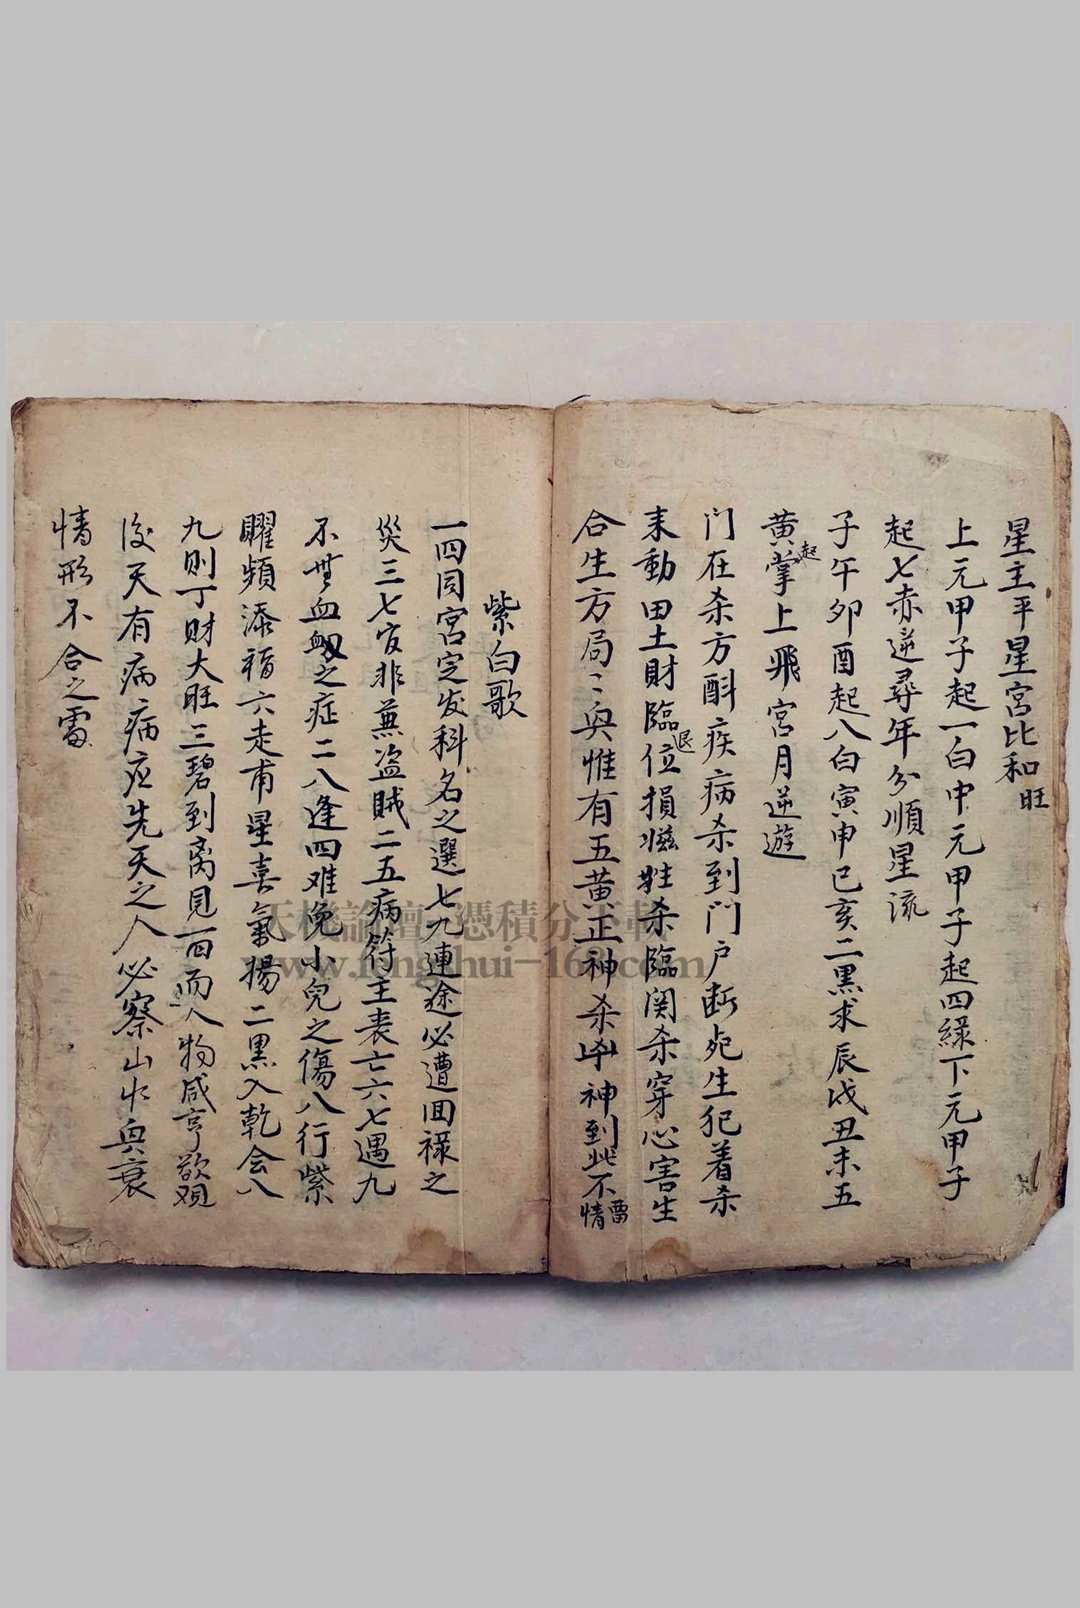 星主平星宮比和旺
上元甲子起一白中元甲子起四綠下元甲子
起七赤逆尋年分順星流
子午卯酉起八白寅申巳亥二黑求辰戌丑未五
黄起掌上飛宮月逆遊
门在杀方酙疾病杀到门户断死生犯着杀
来動田土財臨退位損滋牲杀臨関杀穿心害生
合生方局〻兴惟有五黄正神杀凶神到此不
情雷
紫白歌
一四同宮定发科名之選七九連途必遭囬禄之
災三七官非蕪盗賊二五病符主丧亡六七遇九
不無血之症二八逢四难免小兒之傷八行紫
矅頻添福六走甫星喜氣揚二黑入乾会八
九則丁財大旺三碧到离見四而人物咸亨欲观
後天有病病应先天之人必察山水兴衰
情形不合之雷
天機論壇 憑積分下載
www.fengshui-168.com